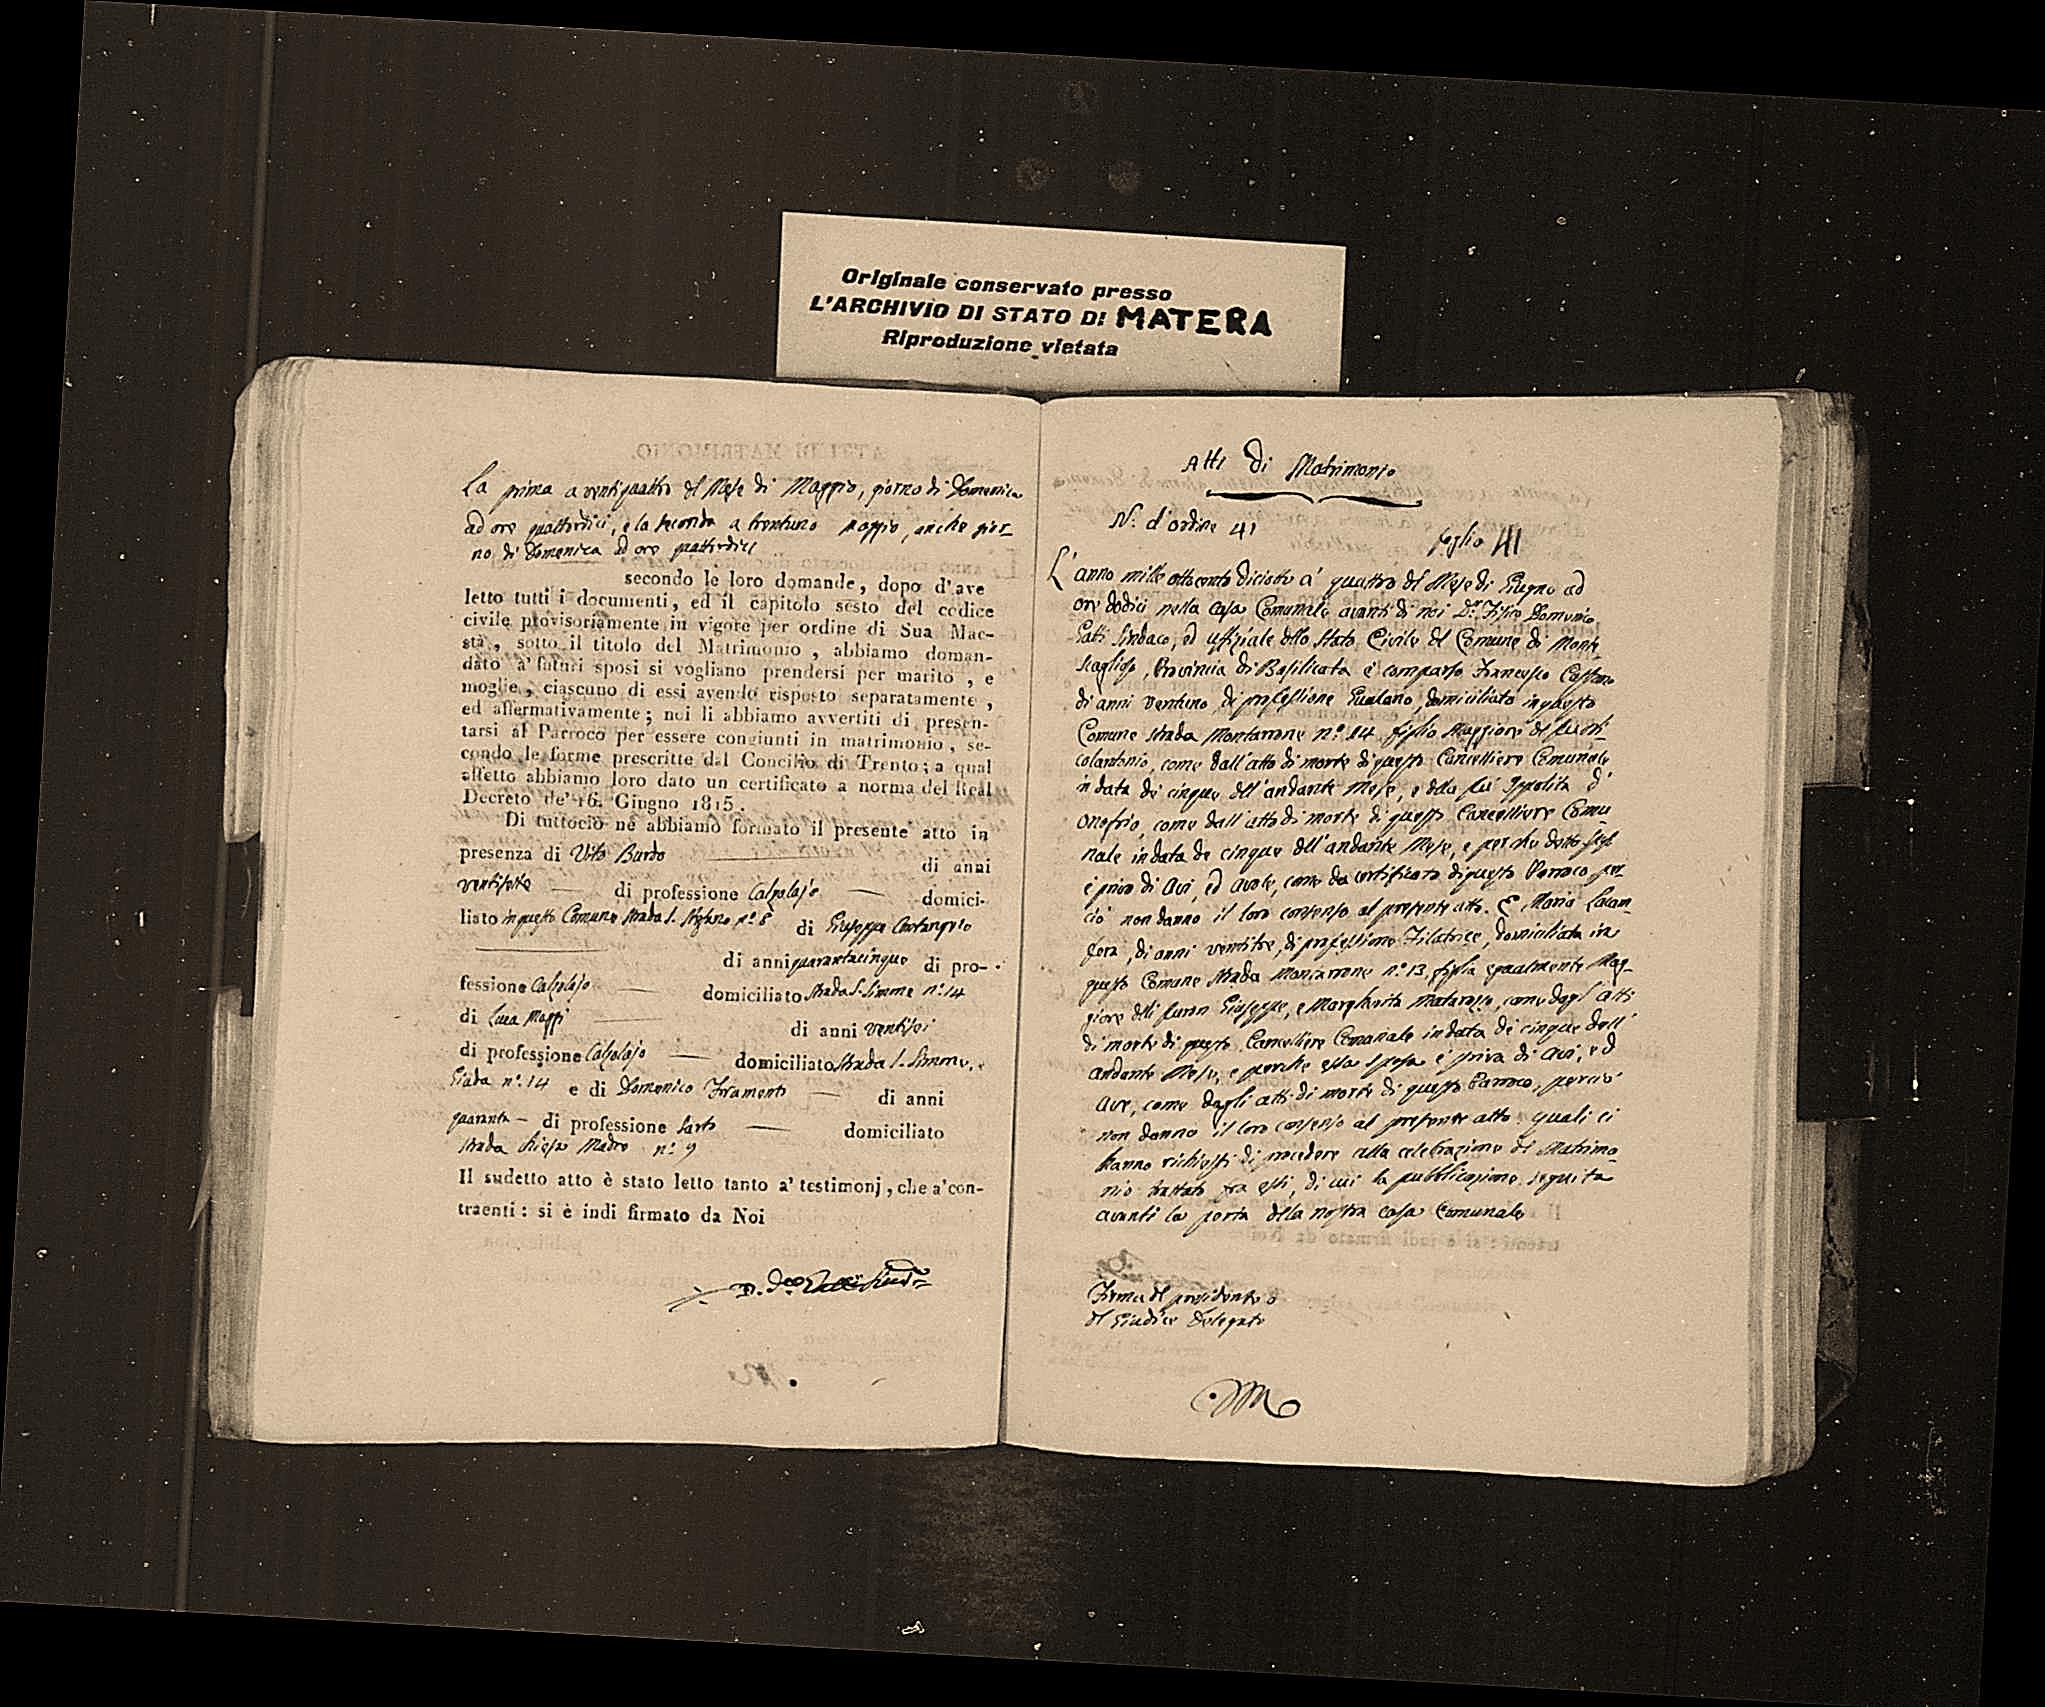 Originale conservato presso
L'ARCHIVIO DI STATO DI MATERA
Riproduzione vietata
La prima a ventiquattro del Mese di Maggio, giorno di Domenica
ad ore quattordici, e la seconda a trentuno Maggio, anche gior-
no di Domenica ad ore quattordici
secondo le loro domande, dopo d'ave
letto tutti i documenti, ed il capitolo sesto del codice
civile provisoriamente in vigore per ordine di Sua Mae-
stà, sotto il titolo del Matrimonio, abbiamo doman-
dato a' futuri sposi si vogliano prendersi per marito, e
moglie, ciascuno di essi avendo risposto separatamente,
ed affermativamente; noi li abbiamo avvertiti di presen-
tarsi al Parroco per essere congiunti in matrimonio, se-
condo le forme prescritte dal Concilio di Trento; a qual
effetto abbiamo loro dato un certificato a norma del Real
Decreto de' 16. Giugno 1815.
Di tuttociò ne abbiamo formato il presente atto in
presenza di Vito Burdo di anni
ventisette di professione Calzolajo domici-
liato in questo Comune strada S. Stefano n.º 8 di Giuseppe
di anni quarantacinque di pro-
fessione Calzolajo domiciliato strada S. Simone n.º 14
di Luca di anni ventisei
di professione Calzolajo domiciliato strada S. Simone, e
Giuda n.º 14 e di Domenico di anni
quaranta di professione Sarto domiciliato
strada Chiesa Madre n.º 9
Il sudetto atto è stato letto tanto a' testimonj, che a' con-
traenti: si è indi firmato da Noi
Atti di Matrimonio
N.º d'ordine 41
foglio 41
L'anno mille ottocento diciotto a' quattro del Mese di Giugno ad
ore dodici nella Casa Comunale avanti di noi D.r Fisico Domenico
Gatti Sindaco, ed uffiziale dello Stato Civile del Comune di Monte
scaglioso, Provincia di Basilicata è comparso Francesco
di anni ventuno, di professione Gualano, domiciliato in questo
Comune strada Montarrone n.º 14 figlio Maggiore del fu Ni-
colantonio, come dall'atto di morte di questo Cancelliere Comunale
in data de cinque dell'andante Mese, e della fu Ippolita d'
Onofrio, come dall'atto di morte di questo Cancelliere Comu-
nale in data de cinque dell'andante Mese, e perché detto
è privo di Avi, ed Avole, come da certificato di questo Parroco per
ciò non danno il loro consenso al presente atto. E Maria
di anni ventitre, di professione Filatrice, domiciliata in
questo Comune strada Montarrone n.º 13, figlia egualmente Mag-
giore delli furon Giuseppe, e Margherita Matarazzo, come dagl'atti
di morte di questo Cancelliere Comunale in data de cinque dell'
andante Mese, e perché essa sposa è priva di Avi, ed
Ave, come dagli atti di morte di questo Parroco, perciò
non danno il loro consenso al presente atto. quali ci
hanno richiesti di procedere alla celebrazione di Matrimo-
nio trattato fra essi, di cui la pubblicazione seguita
avanti la porta della nostra casa Comunale
Firma del presidente o
del Giudice Delegato